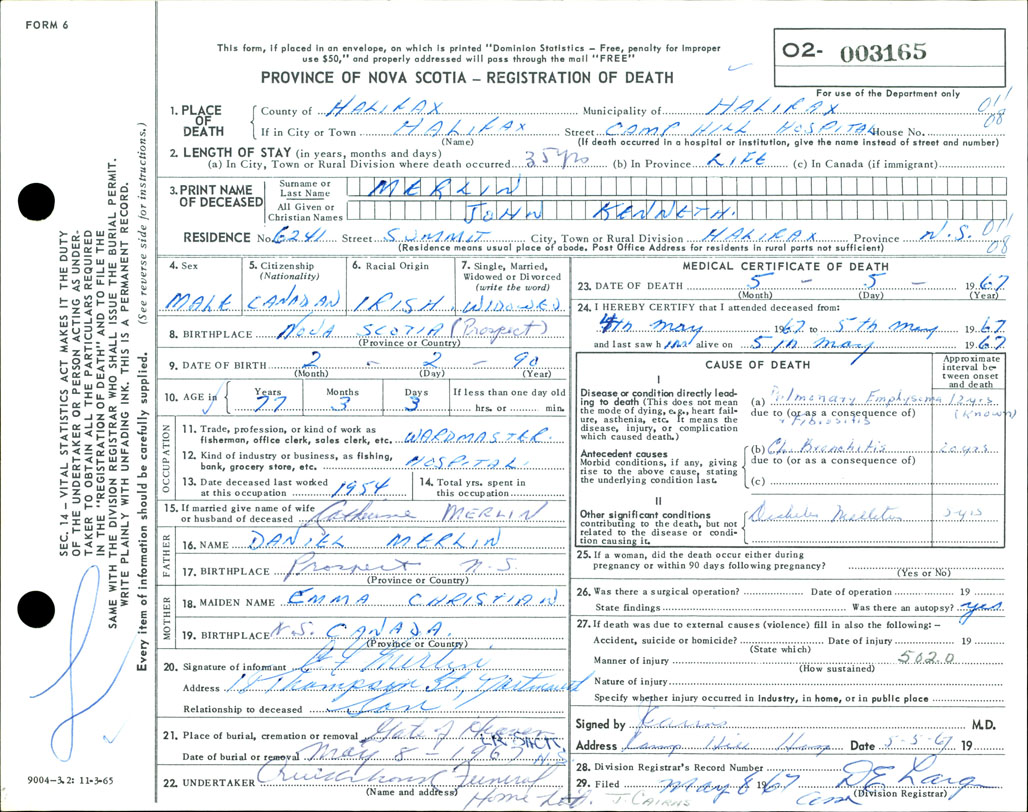 FORM 6
This form, if placed in an envelope, on which is printed "Dominion Statistics – Free, penalty for improper
use $50," and properly addressed will pass through the mail "FREE"
PROVINCE OF NOVA SCOTIA – REGISTRATION OF DEATH
O2- 003165
For use of the Department only
SEC. 14 – VITAL STATISTICS ACT MAKES IT THE DUTY
OF THE UNDERTAKER OR PERSON ACTING AS UNDER-
TAKER TO OBTAIN ALL THE PARTICULARS REQUIRED
IN THE "REGISTRATION OF DEATH" AND TO FILE THE
SAME WITH THE DIVISION REGISTRAR WHO SHALL ISSUE THE BURIAL PERMIT.
WRITE PLAINLY WITH UNFADING INK. THIS IS A PERMANENT RECORD.
Every item of information should be carefully supplied. (See reverse side for instructions.)
1. PLACE OF DEATH
County of HALIFAX Municipality of HALIFAX 011 08
If in City or Town HALIFAX Street CAMP HILL HOSPITAL House No.
(Name) (If death occurred in a hospital or institution, give the name instead of street and number)
2. LENGTH OF STAY (in years, months and days)
(a) In City, Town or Rural Division where death occurred 35 yrs (b) In Province LIFE (c) In Canada (if immigrant)
3. PRINT NAME OF DECEASED
Surname or Last Name MERLIN
All Given or Christian Names JOHN KENNETH.
RESIDENCE No. 6241 Street SUMMIT City, Town or Rural Division HALIFAX Province N.S. 011 08
(Residence means usual place of abode. Post Office Address for residents in rural parts not sufficient)
4. Sex MALE
5. Citizenship (Nationality) CANADIAN
6. Racial Origin IRISH
7. Single, Married, Widowed or Divorced (write the word) WIDOWED
8. BIRTHPLACE NOVA SCOTIA (Prospect)
(Province or Country)
9. DATE OF BIRTH 2 – 2 – 90
(Month) (Day) (Year)
10. AGE in Years 77 Months 3 Days 3 If less than one day old
hrs. or min.
OCCUPATION
11. Trade, profession, or kind of work as
fisherman, office clerk, sales clerk, etc. WARDMASTER.
12. Kind of industry or business, as fishing,
bank, grocery store, etc. HOSPITAL
13. Date deceased last worked
at this occupation 1954
14. Total yrs. spent in
this occupation
15. If married give name of wife
or husband of deceased Catherine MERLIN
FATHER
16. NAME DANIEL MERLIN
17. BIRTHPLACE Prospect N.S
(Province or Country)
MOTHER
18. MAIDEN NAME EMMA CHRISTIAN
19. BIRTHPLACE N.S. CANADA.
(Province or Country)
20. Signature of informant Merlin
Address Thompson St, Dartmouth
Relationship to deceased Son
21. Place of burial, cremation or removal Gate of Heaven
Date of burial or removal May 8 – 1967 N.S.
22. UNDERTAKER Cruikshanks Funeral
(Name and address) Home J. CAIRNS
9004-3.2: 11-3-65
MEDICAL CERTIFICATE OF DEATH
23. DATE OF DEATH 5 – 5 – 1967
(Month) (Day) (Year)
24. I HEREBY CERTIFY that I attended deceased from:
4th May 1967 to 5th May 1967
and last saw him alive on 5th May 1967
CAUSE OF DEATH
Approximate interval between onset and death
I
Disease or condition directly leading to death (This does not mean
the mode of dying, e.g., heart failure, asthenia, etc. It means the
disease, injury, or complication
which caused death.)
(a) Pulmonary Emphysema 12 yrs. (Known)
due to (or as a consequence of)
+ Fibrositis
Antecedent causes
Morbid conditions, if any, giving
rise to the above cause, stating
the underlying condition last.
(b) Ch. Bronchitis 20 yrs
due to (or as a consequence of)
(c)
II
Other significant conditions
contributing to the death, but not
related to the disease or condition causing it.
Diabetes Mellitus yrs
25. If a woman, did the death occur either during
pregnancy or within 90 days following pregnancy?
(Yes or No)
26. Was there a surgical operation? Date of operation 19
State findings Was there an autopsy? yes
27. If death was due to external causes (violence) fill in also the following: –
Accident, suicide or homicide? Date of injury 19
(State which)
Manner of injury 502.0
(How sustained)
Nature of injury
Specify whether injury occurred in Industry, in home, or in public place
Signed by Cairns M.D.
Address Camp Hill Hosp Date 5-5-67 19
28. Division Registrar's Record Number
29. Filed May 8 1967
(Division Registrar)